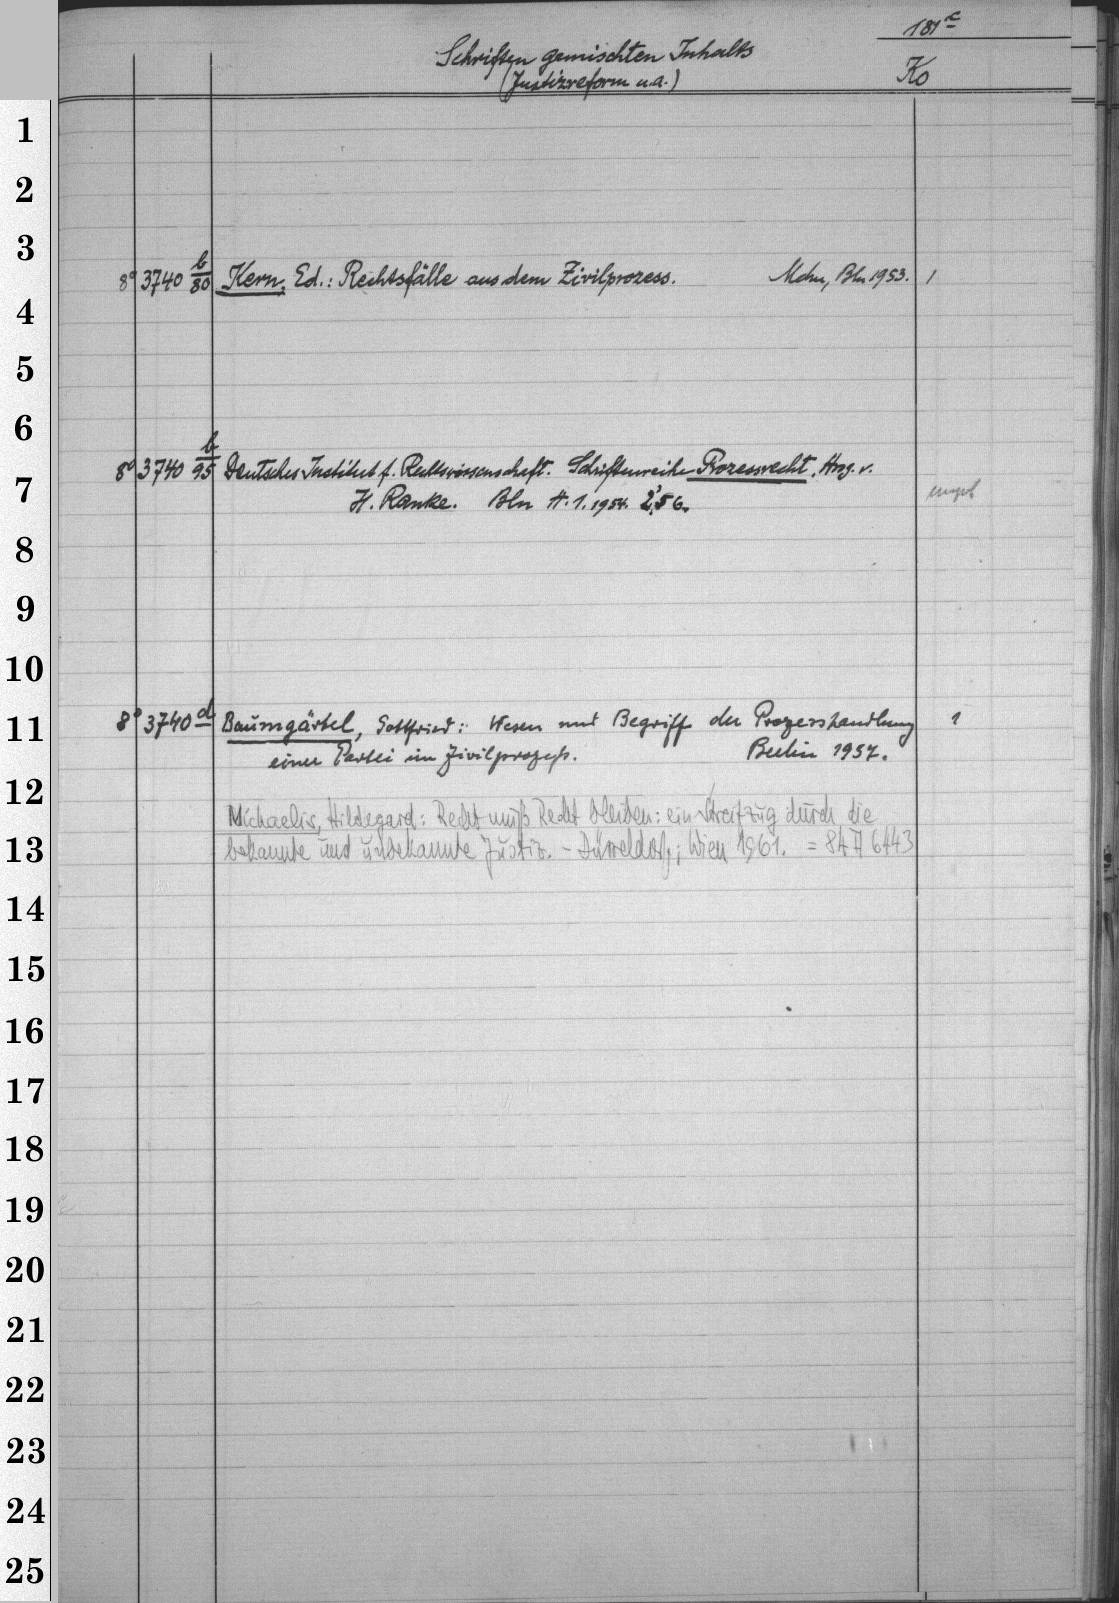 181c
Schriften gemischten Inhalts
(Justizreform u.a.)
Ko
1
2
3
8° 3740 b/80 Kern, Ed.: Rechtsfälle aus dem Zivilprozess. Bln 1953. 1
4
5
6
8° 3740 b/95 Deutsches Institut f. Rechtswissenschaft. Schriftenreihe Prozessrecht. Hrsg. v.
7
H. Ranke. Bln H. 1. 1954. 2. 56.
8
9
10
8° 3740 d Baumgärtel, Gottfried: Wesen und Begriff der Prozesshandlung 1
11
einer Partei im Zivilprozeß. Berlin 1957.
12
Michaelis, Hildegard: Recht muß Recht bleiben: ein Streifzug durch die
13
bekannte und unbekannte Justiz. – Düsseldorf; Wien 1961. = 84 A 6443
14
15
16
17
18
19
20
21
22
23
24
25